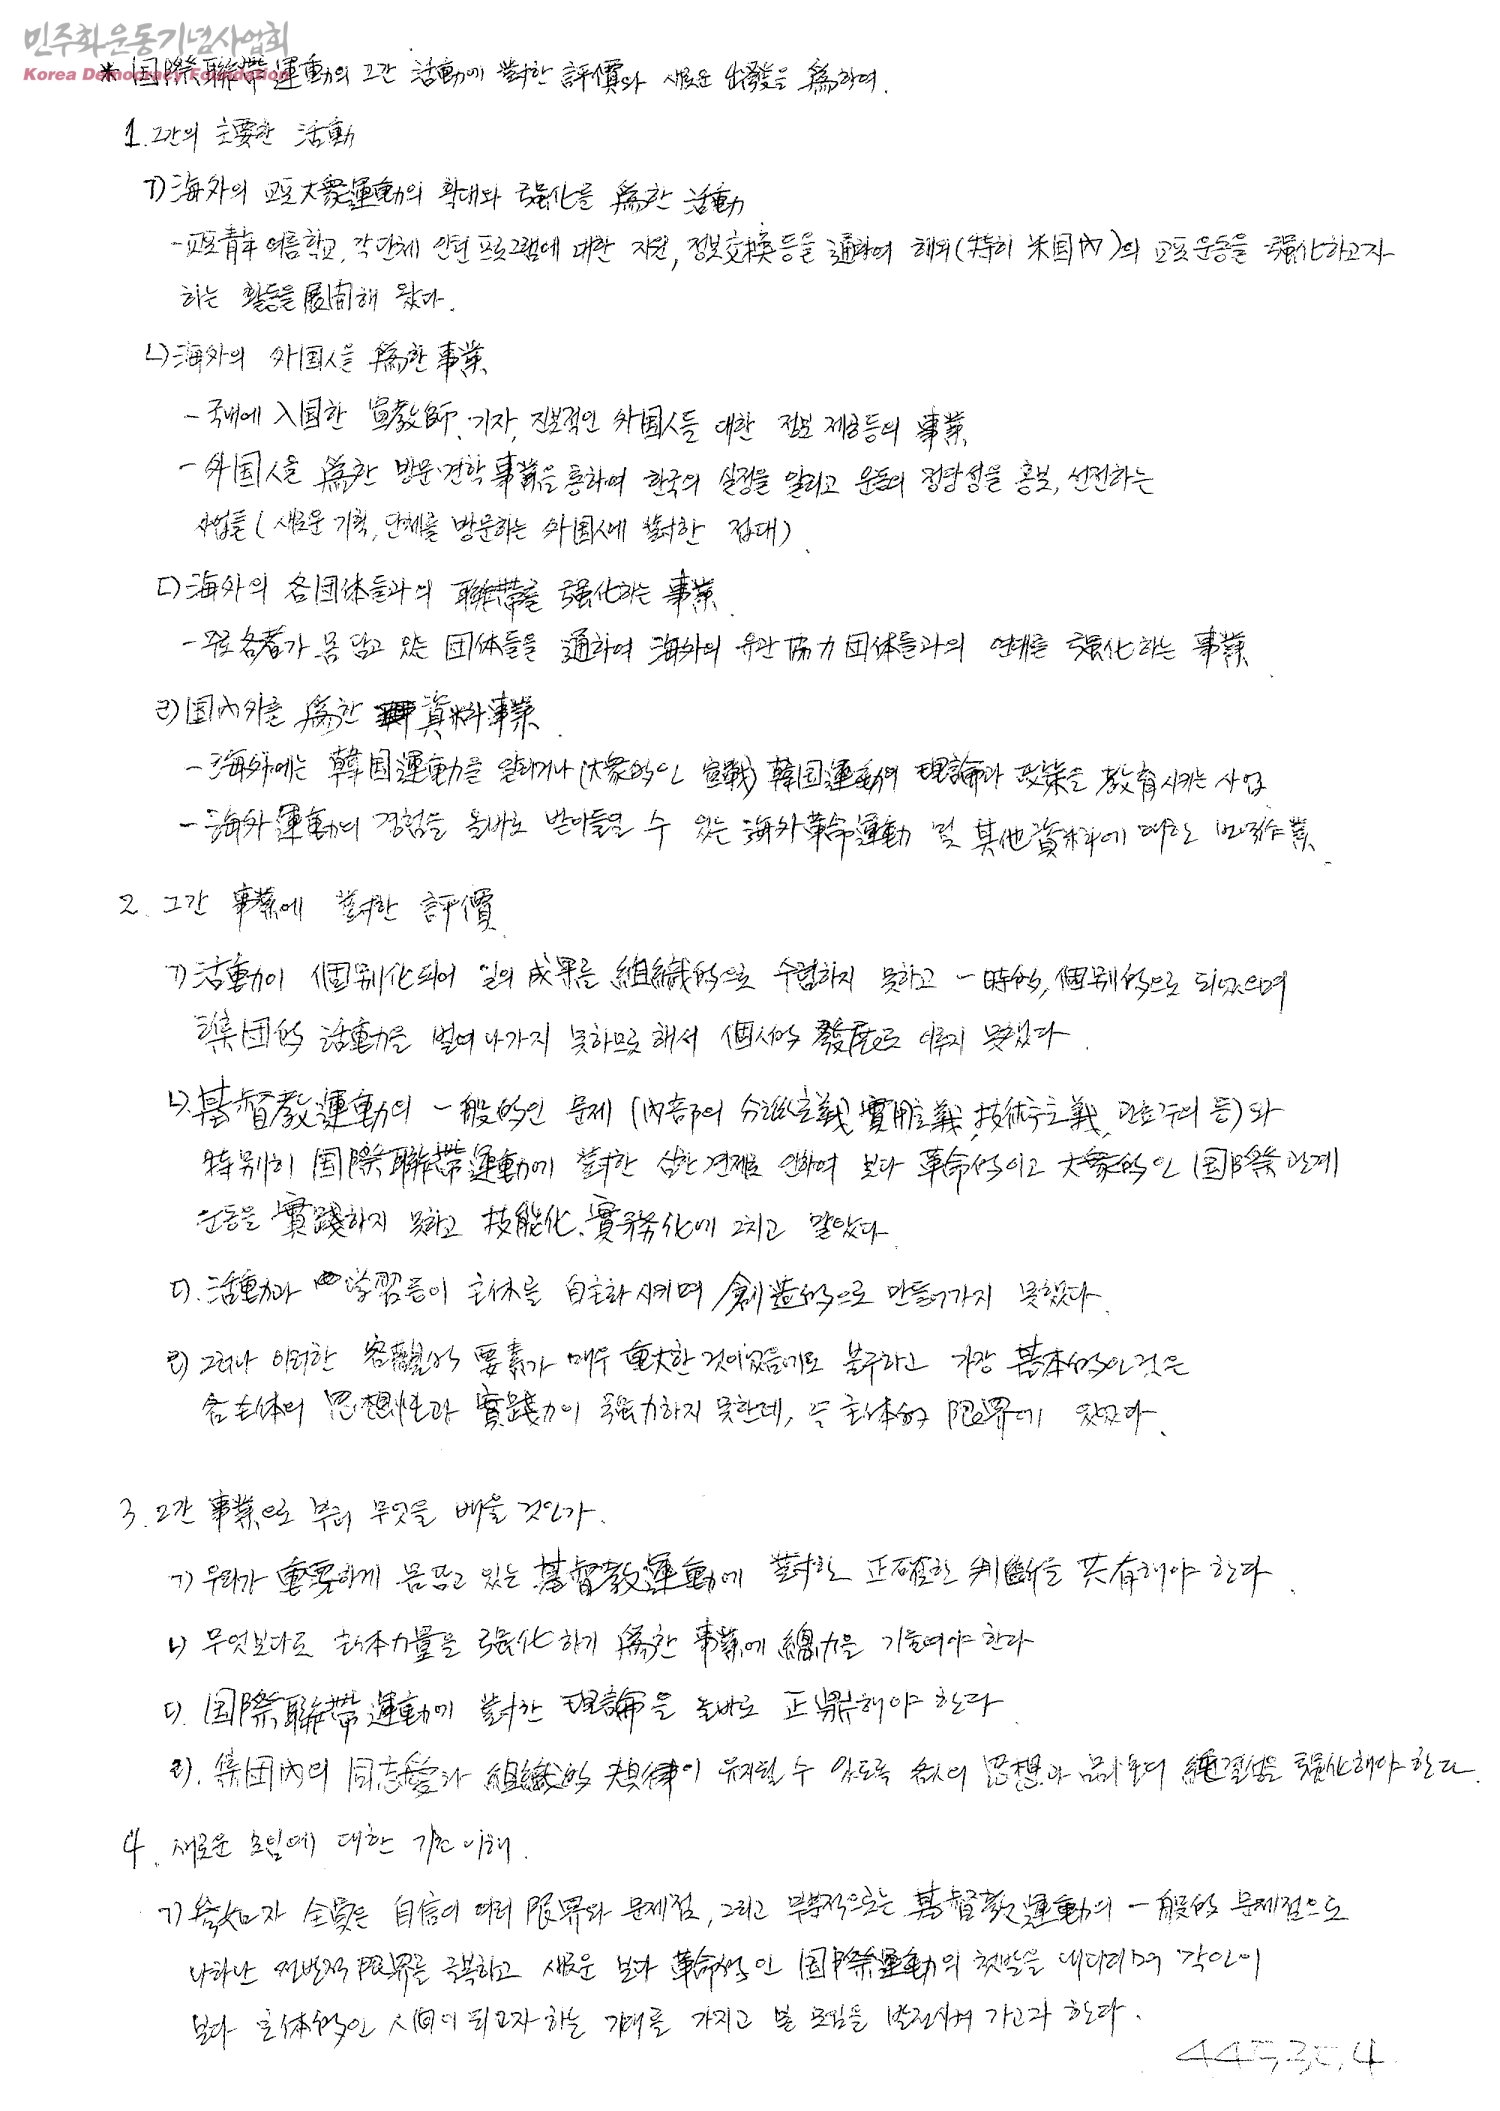 민주화운동기념사업회
Korea Democracy Foundation
* 国際聯帶運動의 그간 活動에 對한 評價와 새로운 出發을 爲하여.
1. 그간의 主要한 活動
ㄱ) 海外의 교포大衆運動의 확대와 强化를 爲한 活動
- 교포靑年 여름학교, 각단체 인턴 프로그램에 대한 지원, 정보交換등을 通하여 해외(特히 米国內)의 교포운동을 强化하고자
하는 활동을 展開해 왔다.
ㄴ) 海外의 外国人을 爲한 事業
- 국내에 入国한 宣敎師, 기자, 진보적인 外国人들 대한 정보 제공등의 事業
- 外国人을 爲한 방문·견학 事業을 통하여 한국의 실정을 알리고 운동의 정당성을 홍보, 선전하는
사업들 (새로운 기획, 단체를 방문하는 外国人에 對한 접대).
ㄷ) 海外의 各団体들과의 聯帶를 强化하는 事業.
- 주로 各者가 몸 담고 있는 団体들을 通하여 海外의 유관 協力 団体들과의 연대를 强化하는 事業.
ㄹ) 国內外를 爲한 資料事業.
- 海外에는 韓国運動을 알리거나 (大衆的인 宣戰) 韓国運動의 理論과 政策을 敎育시키는 사업
- 海外運動의 경험을 올바로 받아들일 수 있는 海外革命運動 및 其他資料에 대한 번역作業.
2. 그간 事業에 對한 評價.
ㄱ) 活動이 個別化되어 일의 成果를 組織的으로 수렴하지 못하고 一時的, 個別的으로 되었으며
集団的 活動을 벌여 나가지 못하므로 해서 個人的 發展도 이루지 못했다.
ㄴ) 基督敎運動의 一般的인 문제 (內部의 分派主義, 實用主義, 技術主義, 관료주의 등)와
特別히 国際聯帶運動에 對한 심한 견제로 인하여 보다 革命的이고 大衆的인 国際관계
운동을 實踐하지 못하고 技能化, 實務化에 그치고 말았다.
ㄷ). 活動과 学習등이 主体를 自主화시키며 創造的으로 만들어가지 못했다.
ㄹ) 그러나 이러한 客觀的 要素가 매우 重大한 것이었음에도 불구하고 가장 基本的인 것은
各主体의 思想性과 實踐力이 强力하지 못한데, 즉 主体的 限界에 있었다.
3. 그간 事業으로 부터 무엇을 배울 것인가.
ㄱ) 우리가 重要하게 몸담고 있는 基督敎運動에 對한 正確한 判斷을 共有해야 한다.
ㄴ) 무엇보다도 主体力量을 强化하기 爲한 事業에 總力을 기울여야 한다
ㄷ). 国際聯帶運動에 對한 理論을 올바로 正鼎해야 한다.
ㄹ). 集団內의 同志愛와 組織的 規律이 유지될 수 있도록 各人의 思想과 의 을 强化해야 한다.
4. 새로운 모임에 대한 기본 이해.
ㄱ) 參加자 全員은 自信이 여러 限界와 문제점, 그리고 부분적으로는 基督敎運動의 一般的 문제점으로
나타난 전반적 限界를 극복하고 새로운 보다 革命的인 国際運動의 첫발을 내디디며 각인이
보다 主体的인 人間이 되고자 하는 기대를 가지고 본 모임을 발전시켜 가고자 한다.